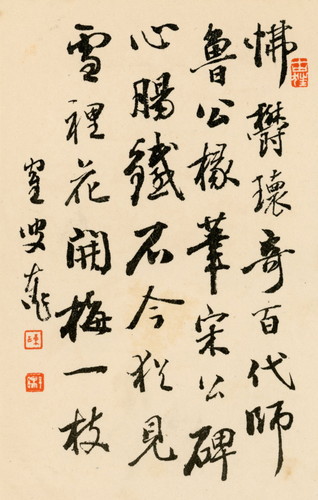 怫欝瓌奇百代師
魯公椽筆宋公碑
心腸鐵石今猶見
雪裡花開梅一枝
叟